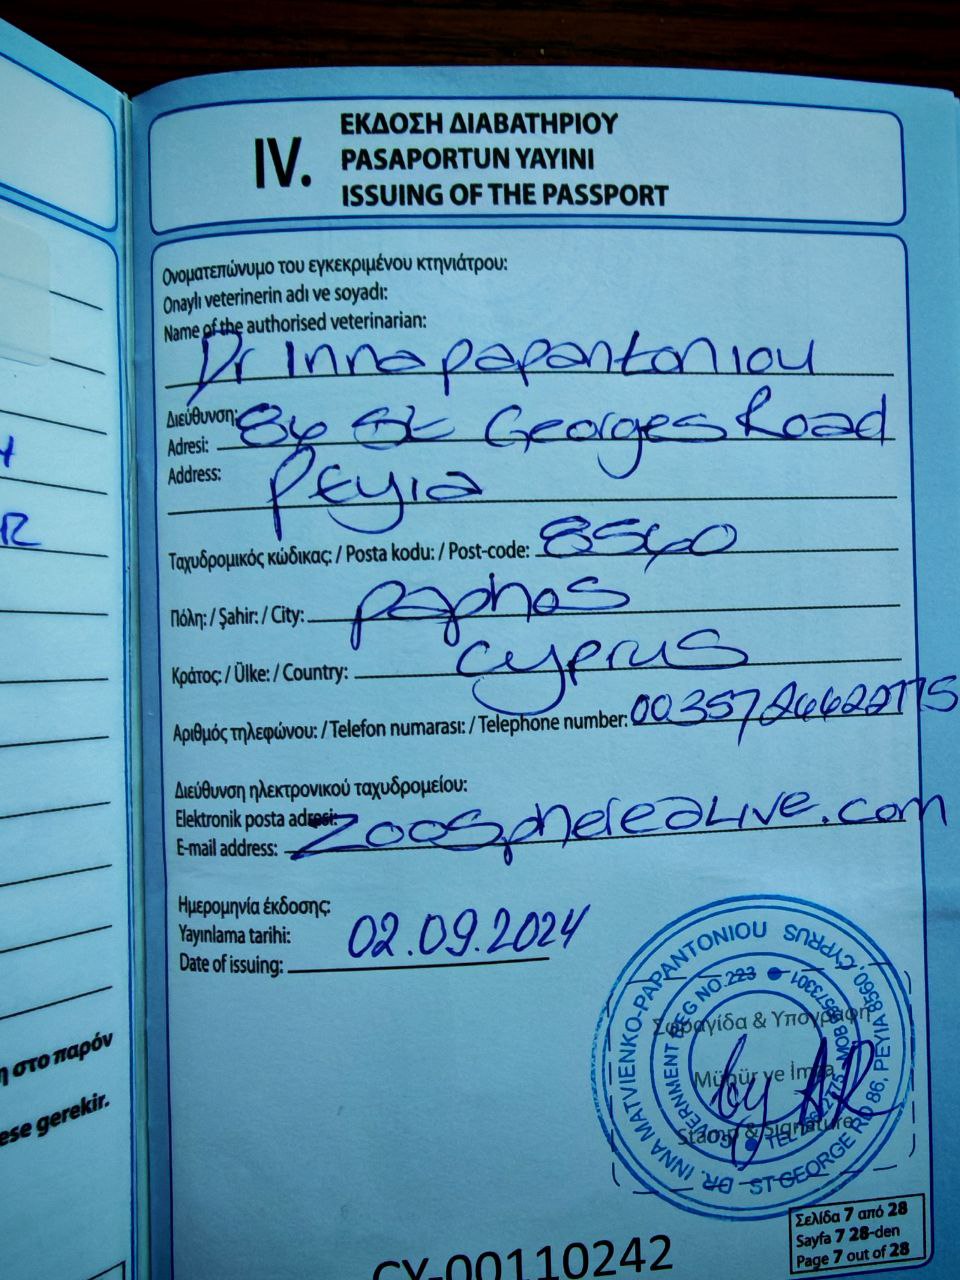 IV.
ΕΚΔΟΣΗ ΔΙΑΒΑΤΗΡΙΟΥ
PASAPORTUN YAYINI
ISSUING OF THE PASSPORT
Ονοματεπώνυμο του εγκεκριμένου κτηνιάτρου:
Onaylı veterinerin adı ve soyadı:
Name of the authorised veterinarian:
Dr Inna Papantoniou
Διεύθυνση:
Adresi: 86 St Georges Road
Address: Peyia
Ταχυδρομικός κώδικας: / Posta kodu: / Post-code: 8560
Πόλη: / Şahir: / City: Paphos
Κράτος: / Ülke: / Country: Cyprus
Αριθμός τηλεφώνου: / Telefon numarası: / Telephone number: 0035726622175
Διεύθυνση ηλεκτρονικού ταχυδρομείου:
Elektronik posta adresi:
E-mail address: zoosphere@Live.com
Ημερομηνία έκδοσης:
Yayınlama tarihi:
Date of issuing: 02.09.2024
DR. INNA MATVIENKO-PAPANTONIOU
ST GEORGE RD 86, PEYIA 8560, CYPRUS
GOVERNMENT REG NO 223
Σφραγίδα & Υπογραφή
Mühür ve İmza
Stamp & Signature
CY-00110242
Σελίδα 7 από 28
Sayfa 7 28-den
Page 7 out of 28
η στο παρόν
ese gerekir.